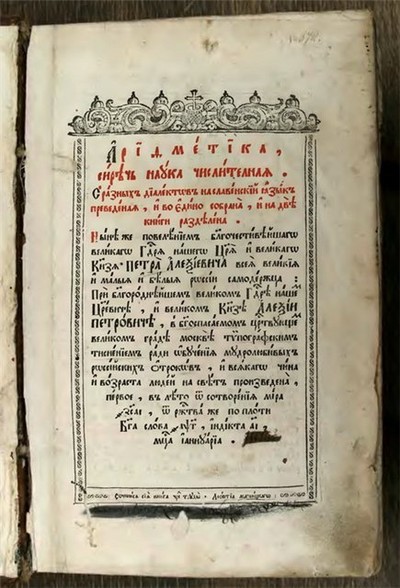 Арїѳметїка,
сирѣчь наука числителная.
С разныхъ дїалектѡвъ на славенскїй ꙗзыкъ
преведеная, и во едино собрана, и на двѣ
книги раздѣлена.
Нынѣ же повелѣнїемъ благочестивѣйшагѡ
великагѡ Гдⷭ҇рѧ нашегѡ Црѧ̀ и великагѡ
Кнзѧ ПЕТРА АЛЕѮїЕВИЧА всеѧ великїѧ
и малыѧ и бѣлыѧ рѡссїи самодержца:
При благороднѣйшемъ великомъ Гдⷭ҇рѣ нашемъ
Цревичѣ, и великомъ Кнзѣ АЛЕѮїИ
ПЕТРОВИЧѢ, в бгоспасаемомъ црствующемъ
великомъ градѣ москвѣ тѵпографскимъ
тисненїемъ ради ѡбученїѧ мудролюбивыхъ
рѡссїйскихъ ѻтрокѡвъ, и всѧкагѡ чина
и возраста людей на свѣтъ произведена,
первое, въ лѣто ѿ сотворенїѧ мїра
҂зсаі, ѿ ржтва же по плоти
Бга слова ҂аѱг, індїкта аі
мсца іаннуарїа.
Сочинисѧ сїѧ книга чрез труды Леонтїа магницкагѡ: